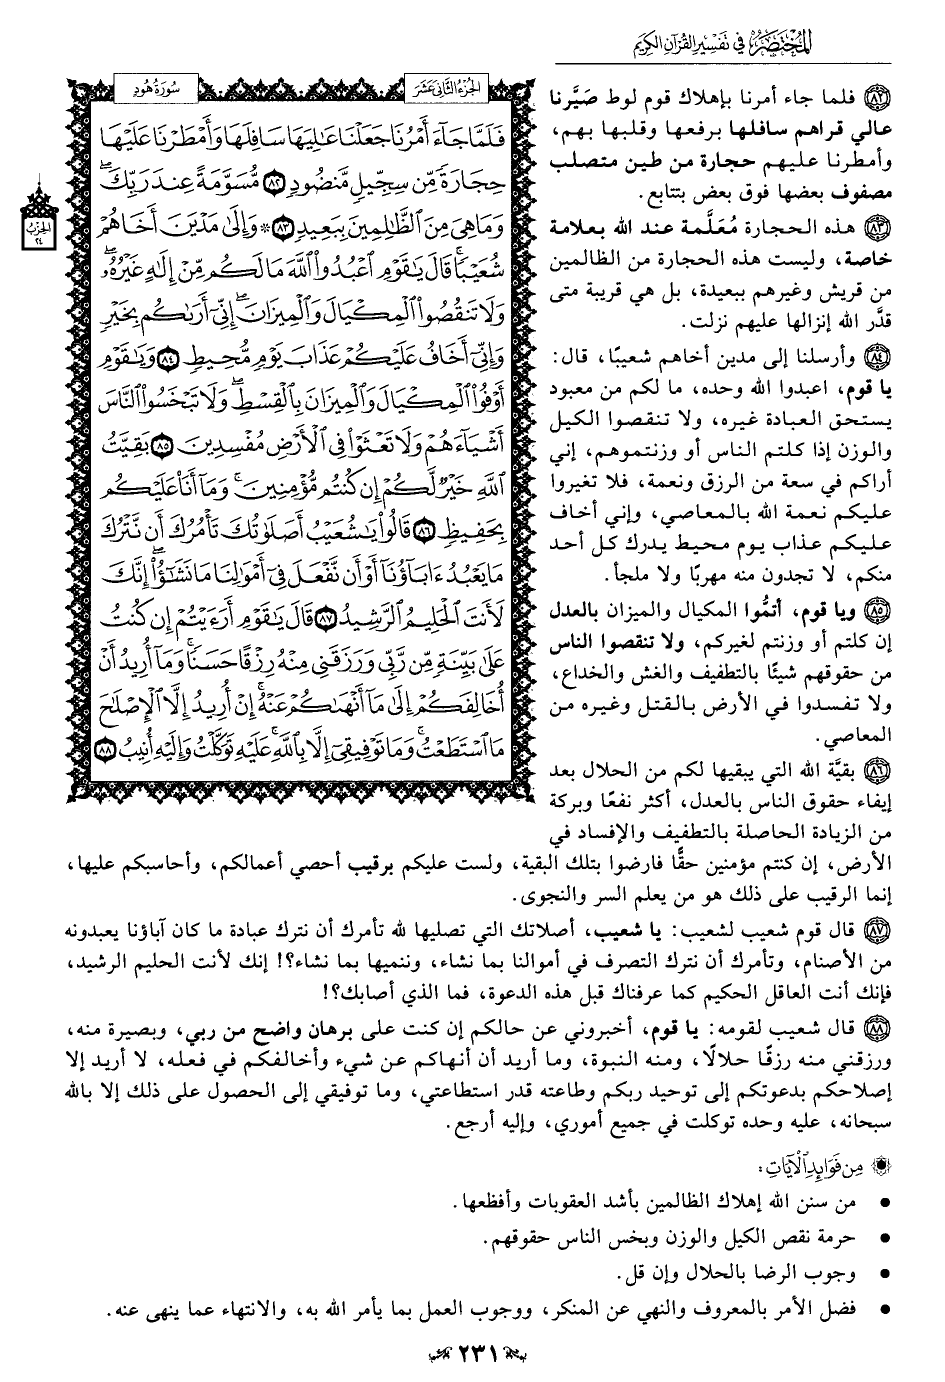 المختصر في تفسير القرآن الكريم
الجزء الثاني عشر
سورة هود
فَلَمَّا جَآءَ أَمْرُنَا جَعَلْنَا عَٰلِيَهَا سَافِلَهَا وَأَمْطَرْنَا عَلَيْهَا
حِجَارَةً مِّن سِجِّيلٍ مَّنضُودٍ ٨٢ مُّسَوَّمَةً عِندَ رَبِّكَۖ
وَمَا هِيَ مِنَ ٱلظَّٰلِمِينَ بِبَعِيدٍ ٨٣ ۞ وَإِلَىٰ مَدْيَنَ أَخَاهُمْ
شُعَيْبًاۚ قَالَ يَٰقَوْمِ ٱعْبُدُواْ ٱللَّهَ مَا لَكُم مِّنْ إِلَٰهٍ غَيْرُهُۥۖ
وَلَا تَنقُصُواْ ٱلْمِكْيَالَ وَٱلْمِيزَانَۖ إِنِّيٓ أَرَىٰكُم بِخَيْرٍ
وَإِنِّيٓ أَخَافُ عَلَيْكُمْ عَذَابَ يَوْمٍ مُّحِيطٍ ٨٤ وَيَٰقَوْمِ
أَوْفُواْ ٱلْمِكْيَالَ وَٱلْمِيزَانَ بِٱلْقِسْطِۖ وَلَا تَبْخَسُواْ ٱلنَّاسَ
أَشْيَآءَهُمْ وَلَا تَعْثَوْاْ فِي ٱلْأَرْضِ مُفْسِدِينَ ٨٥ بَقِيَّتُ
ٱللَّهِ خَيْرٌ لَّكُمْ إِن كُنتُم مُّؤْمِنِينَۚ وَمَآ أَنَا۠ عَلَيْكُم
بِحَفِيظٍ ٨٦ قَالُواْ يَٰشُعَيْبُ أَصَلَوٰتُكَ تَأْمُرُكَ أَن نَّتْرُكَ
مَا يَعْبُدُ ءَابَآؤُنَآ أَوْ أَن نَّفْعَلَ فِيٓ أَمْوَٰلِنَا مَا نَشَٰٓؤُاْۖ إِنَّكَ
لَأَنتَ ٱلْحَلِيمُ ٱلرَّشِيدُ ٨٧ قَالَ يَٰقَوْمِ أَرَءَيْتُمْ إِن كُنتُ
عَلَىٰ بَيِّنَةٍ مِّن رَّبِّي وَرَزَقَنِي مِنْهُ رِزْقًا حَسَنًاۚ وَمَآ أُرِيدُ أَنْ
أُخَالِفَكُمْ إِلَىٰ مَآ أَنْهَىٰكُمْ عَنْهُۚ إِنْ أُرِيدُ إِلَّا ٱلْإِصْلَٰحَ
مَا ٱسْتَطَعْتُۚ وَمَا تَوْفِيقِيٓ إِلَّا بِٱللَّهِۚ عَلَيْهِ تَوَكَّلْتُ وَإِلَيْهِ أُنِيبُ ٨٨
الحزب
٢٤
٨٢ فلما جاء أمرنا بإهلاك قوم لوط صَيَّرنا
عالي قراهم سافلها برفعها وقلبها بهم،
وأمطرنا عليهم حجارة من طين متصلب
مصفوف بعضها فوق بعض بتتابع.
٨٣ هذه الحجارة مُعَلَّمة عند الله بعلامة
خاصة، وليست هذه الحجارة من الظالمين
من قريش وغيرهم ببعيدة، بل هي قريبة متى
قدَّر الله إنزالها عليهم نزلت.
٨٤ وأرسلنا إلى مدين أخاهم شعيبًا، قال:
يا قوم، اعبدوا الله وحده، ما لكم من معبود
يستحق العبادة غيره، ولا تنقصوا الكيل
والوزن إذا كلتم الناس أو وزنتموهم، إني
أراكم في سعة من الرزق ونعمة، فلا تغيروا
عليكم نعمة الله بالمعاصي، وإني أخاف
عليكم عذاب يوم محيط يدرك كل أحد
منكم، لا تجدون منه مهربًا ولا ملجأ.
٨٥ ويا قوم، أتمُّوا المكيال والميزان بالعدل
إن كلتم أو وزنتم لغيركم، ولا تنقصوا الناس
من حقوقهم شيئًا بالتطفيف والغش والخداع،
ولا تفسدوا في الأرض بالقتل وغيره من
المعاصي.
٨٦ بقيَّة الله التي يبقيها لكم من الحلال بعد
إيفاء حقوق الناس بالعدل، أكثر نفعًا وبركة
من الزيادة الحاصلة بالتطفيف والإفساد في
الأرض، إن كنتم مؤمنين حقًّا فارضوا بتلك البقية، ولست عليكم برقيب أحصي أعمالكم، وأحاسبكم عليها،
إنما الرقيب على ذلك هو من يعلم السر والنجوى.
٨٧ قال قوم شعيب لشعيب: يا شعيب، أصلاتك التي تصليها لله تأمرك أن نترك عبادة ما كان آباؤنا يعبدونه
من الأصنام، وتأمرك أن نترك التصرف في أموالنا بما نشاء، وننميها بما نشاء؟! إنك لأنت الحليم الرشيد،
فإنك أنت العاقل الحكيم كما عرفناك قبل هذه الدعوة، فما الذي أصابك؟!
٨٨ قال شعيب لقومه: يا قوم، أخبروني عن حالكم إن كنت على برهان واضح من ربي، وبصيرة منه،
ورزقني منه رزقًا حلالًا، ومنه النبوة، وما أريد أن أنهاكم عن شيء وأخالفكم في فعله، لا أريد إلا
إصلاحكم بدعوتكم إلى توحيد ربكم وطاعته قدر استطاعتي، وما توفيقي إلى الحصول على ذلك إلا بالله
سبحانه، عليه وحده توكلت في جميع أموري، وإليه أرجع.
من فوائد الآيات:
• من سنن الله إهلاك الظالمين بأشد العقوبات وأفظعها.
• حرمة نقص الكيل والوزن وبخس الناس حقوقهم.
• وجوب الرضا بالحلال وإن قل.
• فضل الأمر بالمعروف والنهي عن المنكر، ووجوب العمل بما يأمر الله به، والانتهاء عما ينهى عنه.
٢٣١